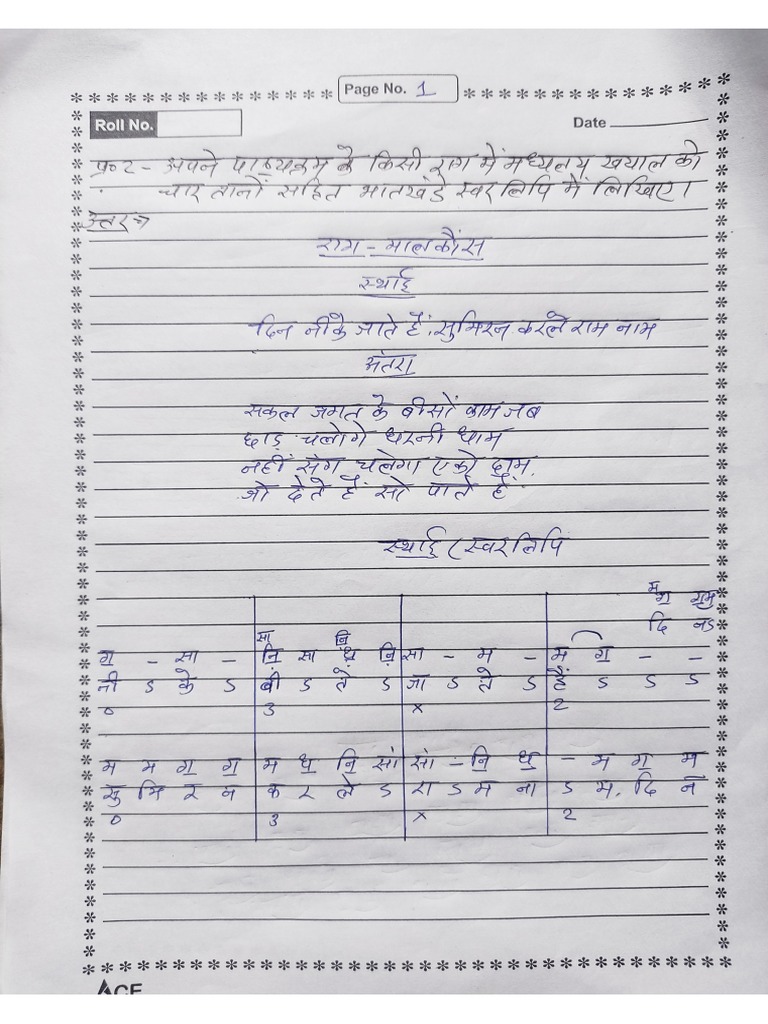 Page No. 1
Roll No.
Date
प्र०2 - अपने पाठ्यक्रम के किसी राग में मध्यलय ख्याल को
चार तानों सहित भातखंडे स्वरलिपि में लिखिए।
उत्तर→
राग - मालकौंस
स्थाई
दिन नीके जाते हैं, सुमिरन करले राम नाम
अंतरा
सकल जगत के बीसों काम जब
छाड़ चलोगे धरनी धाम
नहीं संग चलेगा एको दाम,
जो देते हैं सो पाते हैं
स्थाई (स्वरलिपि
म
ग॒ ग॒म
दि नऽ
सा नि॒
ग॒ - सा - नि॒ सा ध॒ नि॒ सा - म - म ग॒ - -
नी ऽ के ऽ बी ऽ ते ऽ जा ऽ ते ऽ हैं ऽ ऽ ऽ
0 3 x 2
म म ग॒ ग॒ म ध॒ नि॒ सां सां - नि॒ ध॒ - म ग॒ म
सु मि र न क र ले ऽ रा ऽ म ना ऽ म, दि न
0 3 x 2
ACE